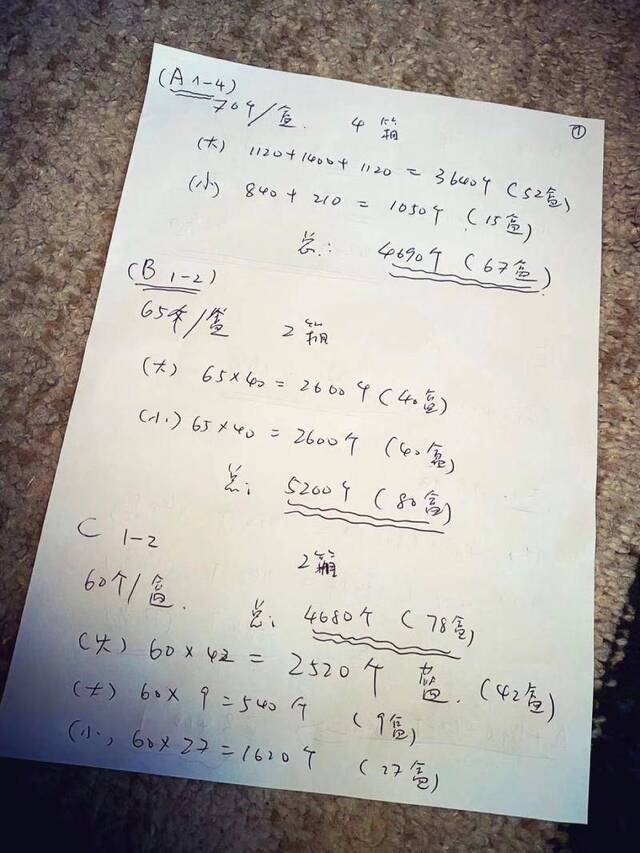 (A 1-4)
①
70个/盒. 4箱
(大) 1120+1400+1120 = 3640个 (52盒)
(小) 840 + 210 = 1050个 (15盒)
总: 4690个 (67盒)
(B 1-2)
65个/盒 2箱
(大) 65×40 = 2600个 (40盒)
(小) 65×40 = 2600个 (40盒)
总: 5200个 (80盒)
C 1-2
2箱
60个/盒.
总: 4680个 (78盒)
(大) 60×42 = 2520个 蓝. (42盒)
(大) 60×9 = 540个 (9盒)
(小) 60×27 = 1620个 (27盒)